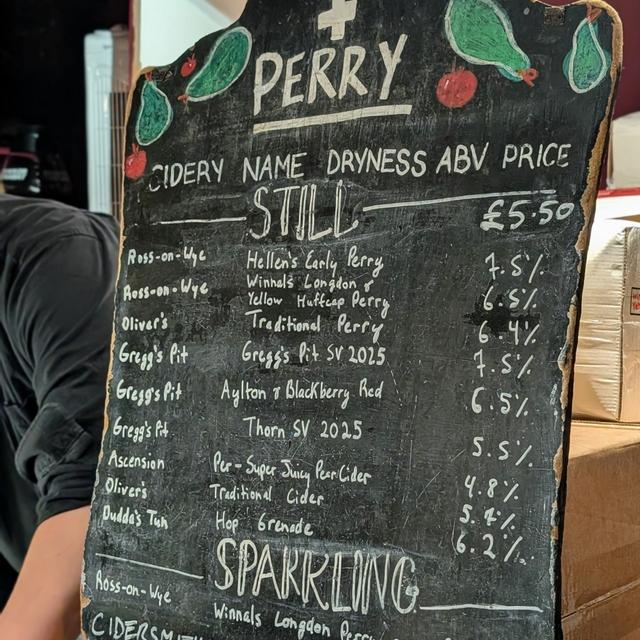 PERRY
CIDERY NAME DRYNESS ABV PRICE
STILL £5.50
Ross-on-Wye Hellen's Early Perry 7.5%
Ross-on-Wye Winnals Longdon &
Yellow Huffcap Perry 6.5%
Oliver's Traditional Perry 6.4%
Gregg's Pit Gregg's Pit SV 2025 7.5%
Gregg's Pit Aylton & Blackberry Red 6.5%
Gregg's Pit Thorn SV 2025 5.5%
Ascension Per-Super Juicy Pear Cider 4.8%
Oliver's Traditional Cider
Dudda's Tun Hop Grenade 6.2%
SPARKLING
Ross-on-Wye Winnals Longdon Perry